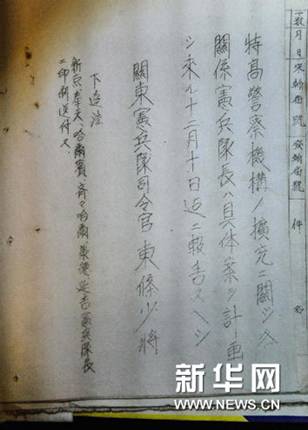 月日 来翰番號 發翰番號 件名
特高警察機構ノ擴充ニ關シ各
關係憲兵隊長ハ具体案ヲ計畫
シ来ル十二月十日迄ニ報告スヘシ
關東憲兵隊司令官 東條少將
下達法
新京、奉天、哈爾賓、齊々哈爾、承徳、延吉憲兵隊長
ニ印刷送付ス
新华网
WWW.NEWS.CN